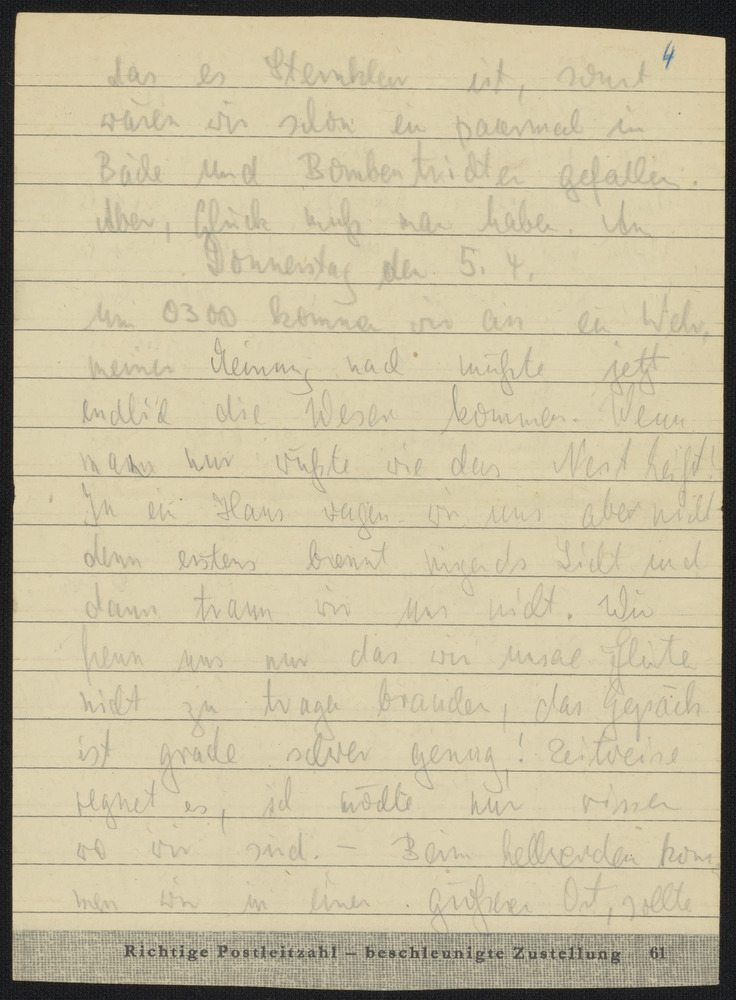 4
das es Sternklar ist, sonst
wären wir schon ein paarmal in
Bäche und Bombentrichter gefallen.
Aber, Glück muß man haben. Am
Donnerstag den 5. 4.
um 0300 kommen wir an ein Wehr,
meiner Meinung nach müßte jetzt
endlich die Weser kommen. Wenn
man nur wüßte wie das Nest heißt!
In ein Haus wagen wir uns aber nicht
denn erstens brennt nirgends Licht und
dann traun wir uns nicht. Wir
freun uns nur das wir unsre Flinte
nicht zu tragen brauchen, das Gepäck
ist grade schwer genug! Zeitweise
regnet es, ich möchte nur wissen
wo wir sind. – Beim hellwerden kom-
men wir in einen größeren Ort, sollte
Richtige Postleitzahl – beschleunigte Zustellung 61